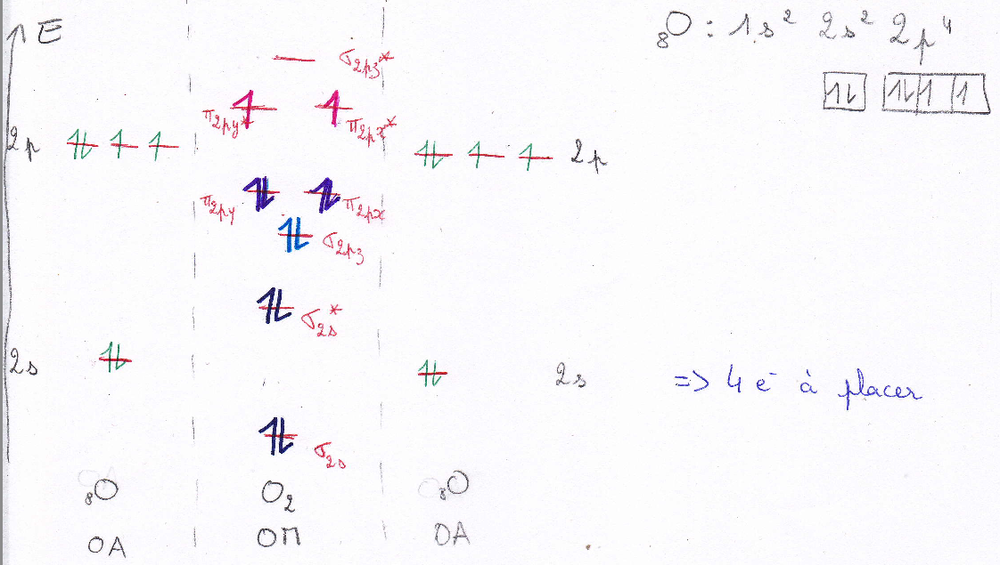 E
₈O : 1s² 2s² 2p⁴
σ2pz*
π2py*
π2px*
2p
2p
π2py
π2px
σ2pz
σ2s*
2s
2s
=> 4 e⁻ à placer
σ2s
₈O
O₂
₈O
OA
OM
OA